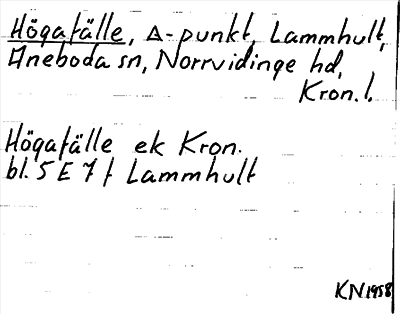 Högafälle, △-punkt, Lammhult,
Aneboda sn, Norrvidinge hd,
Kron. l.
Högafälle ek Kron.
bl. 5 E 7 f Lammhult
KN 1958